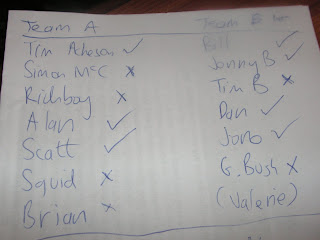 Team A
Tim Acheson ✓
Simon McC x
Richboy x
Alan ✓
Scott ✓
Squid x
Brian x
Team B
Bill ✓
Jonny B ✓
Tim B x
Dan ✓
Jono ✓
G. Bush x
(Valerie)